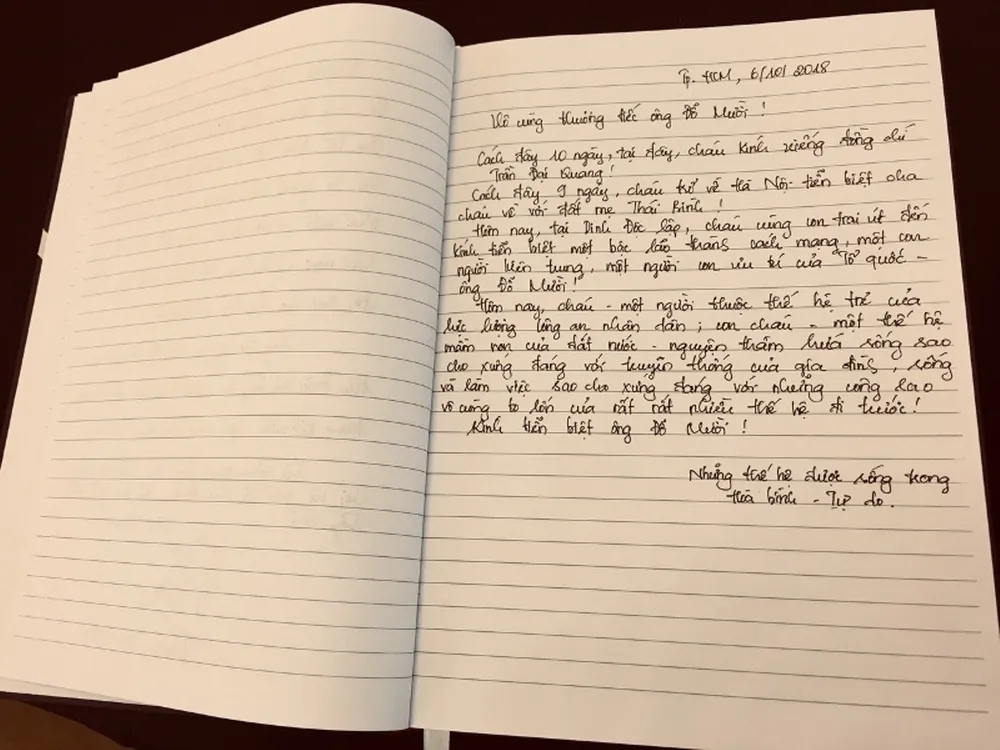 Tp. HCM, 6/10/2018
Vô cùng thương tiếc ông Đỗ Mười!
Cách đây 10 ngày, tại đây, cháu kính viếng đồng chí
Trần Đại Quang!
Cách đây 9 ngày, cháu trở về Hà Nội tiễn biệt cha
cháu về với đất mẹ Thái Bình!
Hôm nay, tại Dinh Độc lập, cháu cùng con trai út đến
kính tiễn biệt một bậc lão thành cách mạng, một con
người kiên trung, một người con ưu tú của Tổ quốc -
ông Đỗ Mười!
Hôm nay, cháu - một người thuộc thế hệ trẻ của
lực lượng Công an nhân dân; con cháu - một thế hệ
mầm non của đất nước - nguyện thầm hứa sống sao
cho xứng đáng với truyền thống của gia đình, sống
và làm việc sao cho xứng đáng với những công lao
vô cùng to lớn của rất rất nhiều thế hệ đi trước!
Kính tiễn biệt ông Đỗ Mười!
Những thế hệ được sống trong
Hoà bình - Tự do.